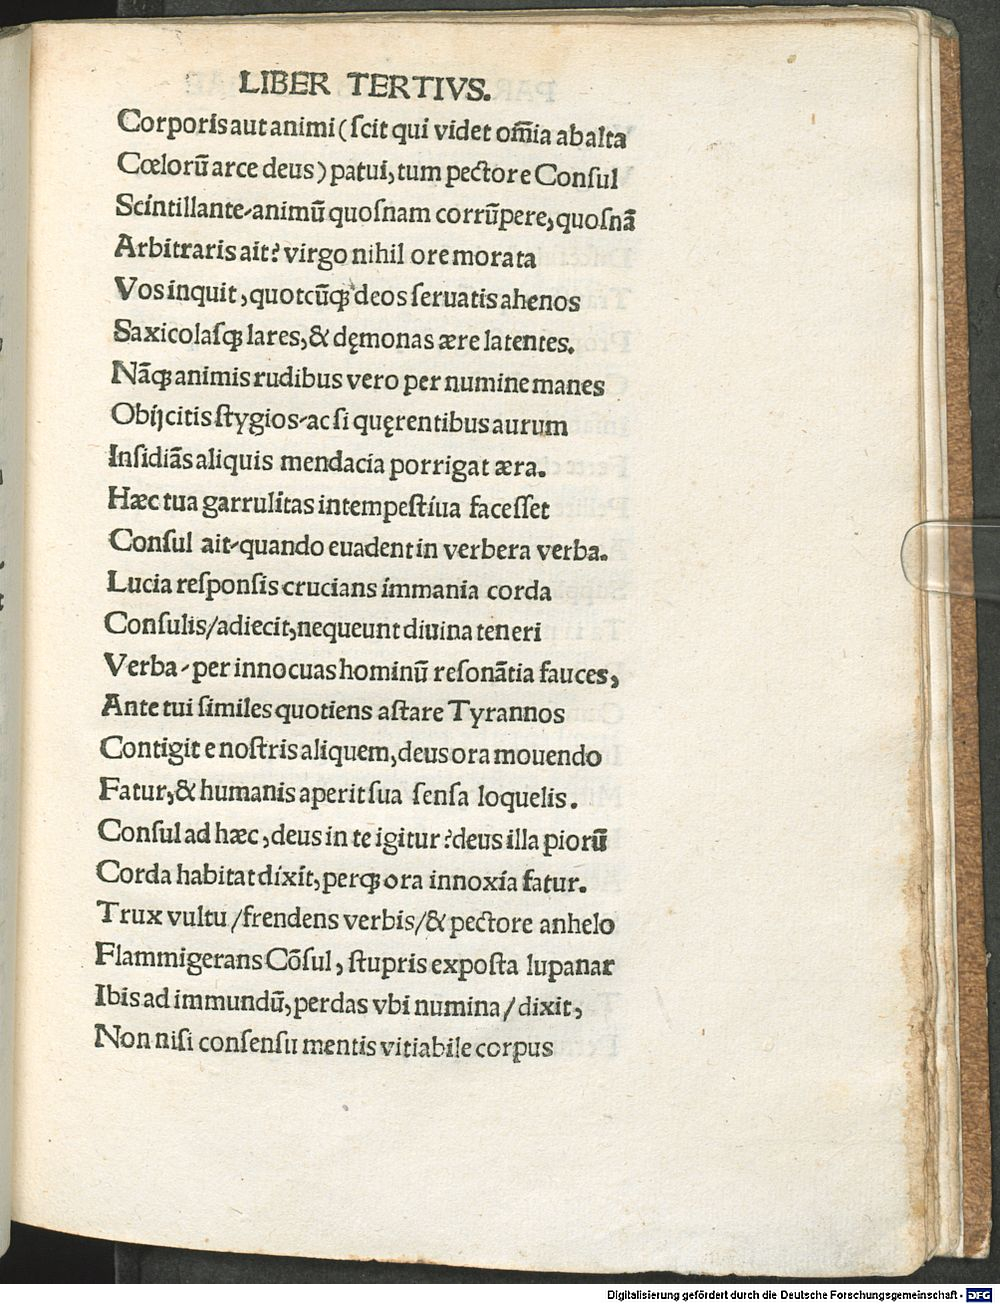 LIBER TERTIVS.
Corporis aut animi (ſcit qui videt om̃ia ab alta
Cœlorũ arce deus) patui, tum pectore Conſul
Scintillante⸗animũ quoſnam corrũpere, quoſnã
Arbitraris ait? virgo nihil ore morata
Vos inquit, quotcũqꝫ deos ſeruatis ahenos
Saxicolaſqꝫ lares, & dęmonas ære latentes.
Nãqꝫ animis rudibus vero per numine manes
Obijcitis ſtygios⸗ac ſi quęrentibus aurum
Inſidiãs aliquis mendacia porrigat æra.
Hæc tua garrulitas intempeſtiua faceſſet
Conſul ait⸗quando euadent in verbera verba.
Lucia reſponſis crucians immania corda
Conſulis/adiecit, nequeunt diuina teneri
Verba⸗per innocuas hominũ reſonãtia fauces,
Ante tui ſimiles quotiens aſtare Tyrannos
Contigit e noſtris aliquem, deus ora mouendo
Fatur, & humanis aperit ſua ſenſa loquelis.
Conſul ad hæc, deus in te igitur? deus illa piorũ
Corda habitat dixit, perqꝫ ora innoxia fatur.
Trux vultu/frendens verbis/& pectore anhelo
Flammigerans Cõſul, ſtupris expoſta lupanar
Ibis ad immundũ, perdas vbi numina/dixit,
Non niſi conſenſu mentis vitiabile corpus
Digitalisierung gefördert durch die Deutsche Forschungsgemeinschaft - DFG